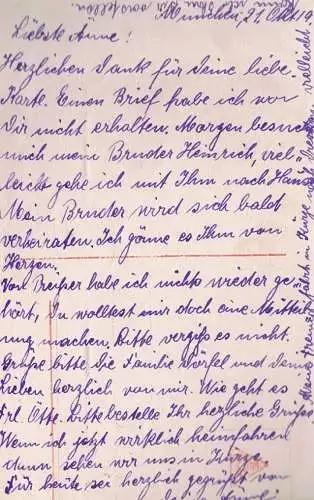 München, 21. Okt. 19
Liebste Änne!
Herzlichen Dank für Deine liebe
Karte. Einen Brief habe ich von
Dir nicht erhalten. Morgen besucht
mich mein Bruder Heinrich, viel-
leicht gehe ich mit Ihm nach Haus
Mein Bruder wird sich bald
verheiraten. Ich gönne es Ihm von
Herzen.
Von Preißer habe ich nichts wieder ge-
hört, Du wolltest mir doch eine Mitteil
ung machen. Bitte vergiß es nicht.
Grüße bitte die Familie Wörfel und Deine
Lieben herzlich von mir. Wie geht es
Frl. Otte. Bitte bestelle Ihr herzliche Grüße
Wenn ich jetzt wirklich heimfahren
dann sehen wir uns in Kürze.
Für heute sei herzlich gegrüßt von
Meine Freundin fährt in Kürze nach Dresden vielleicht